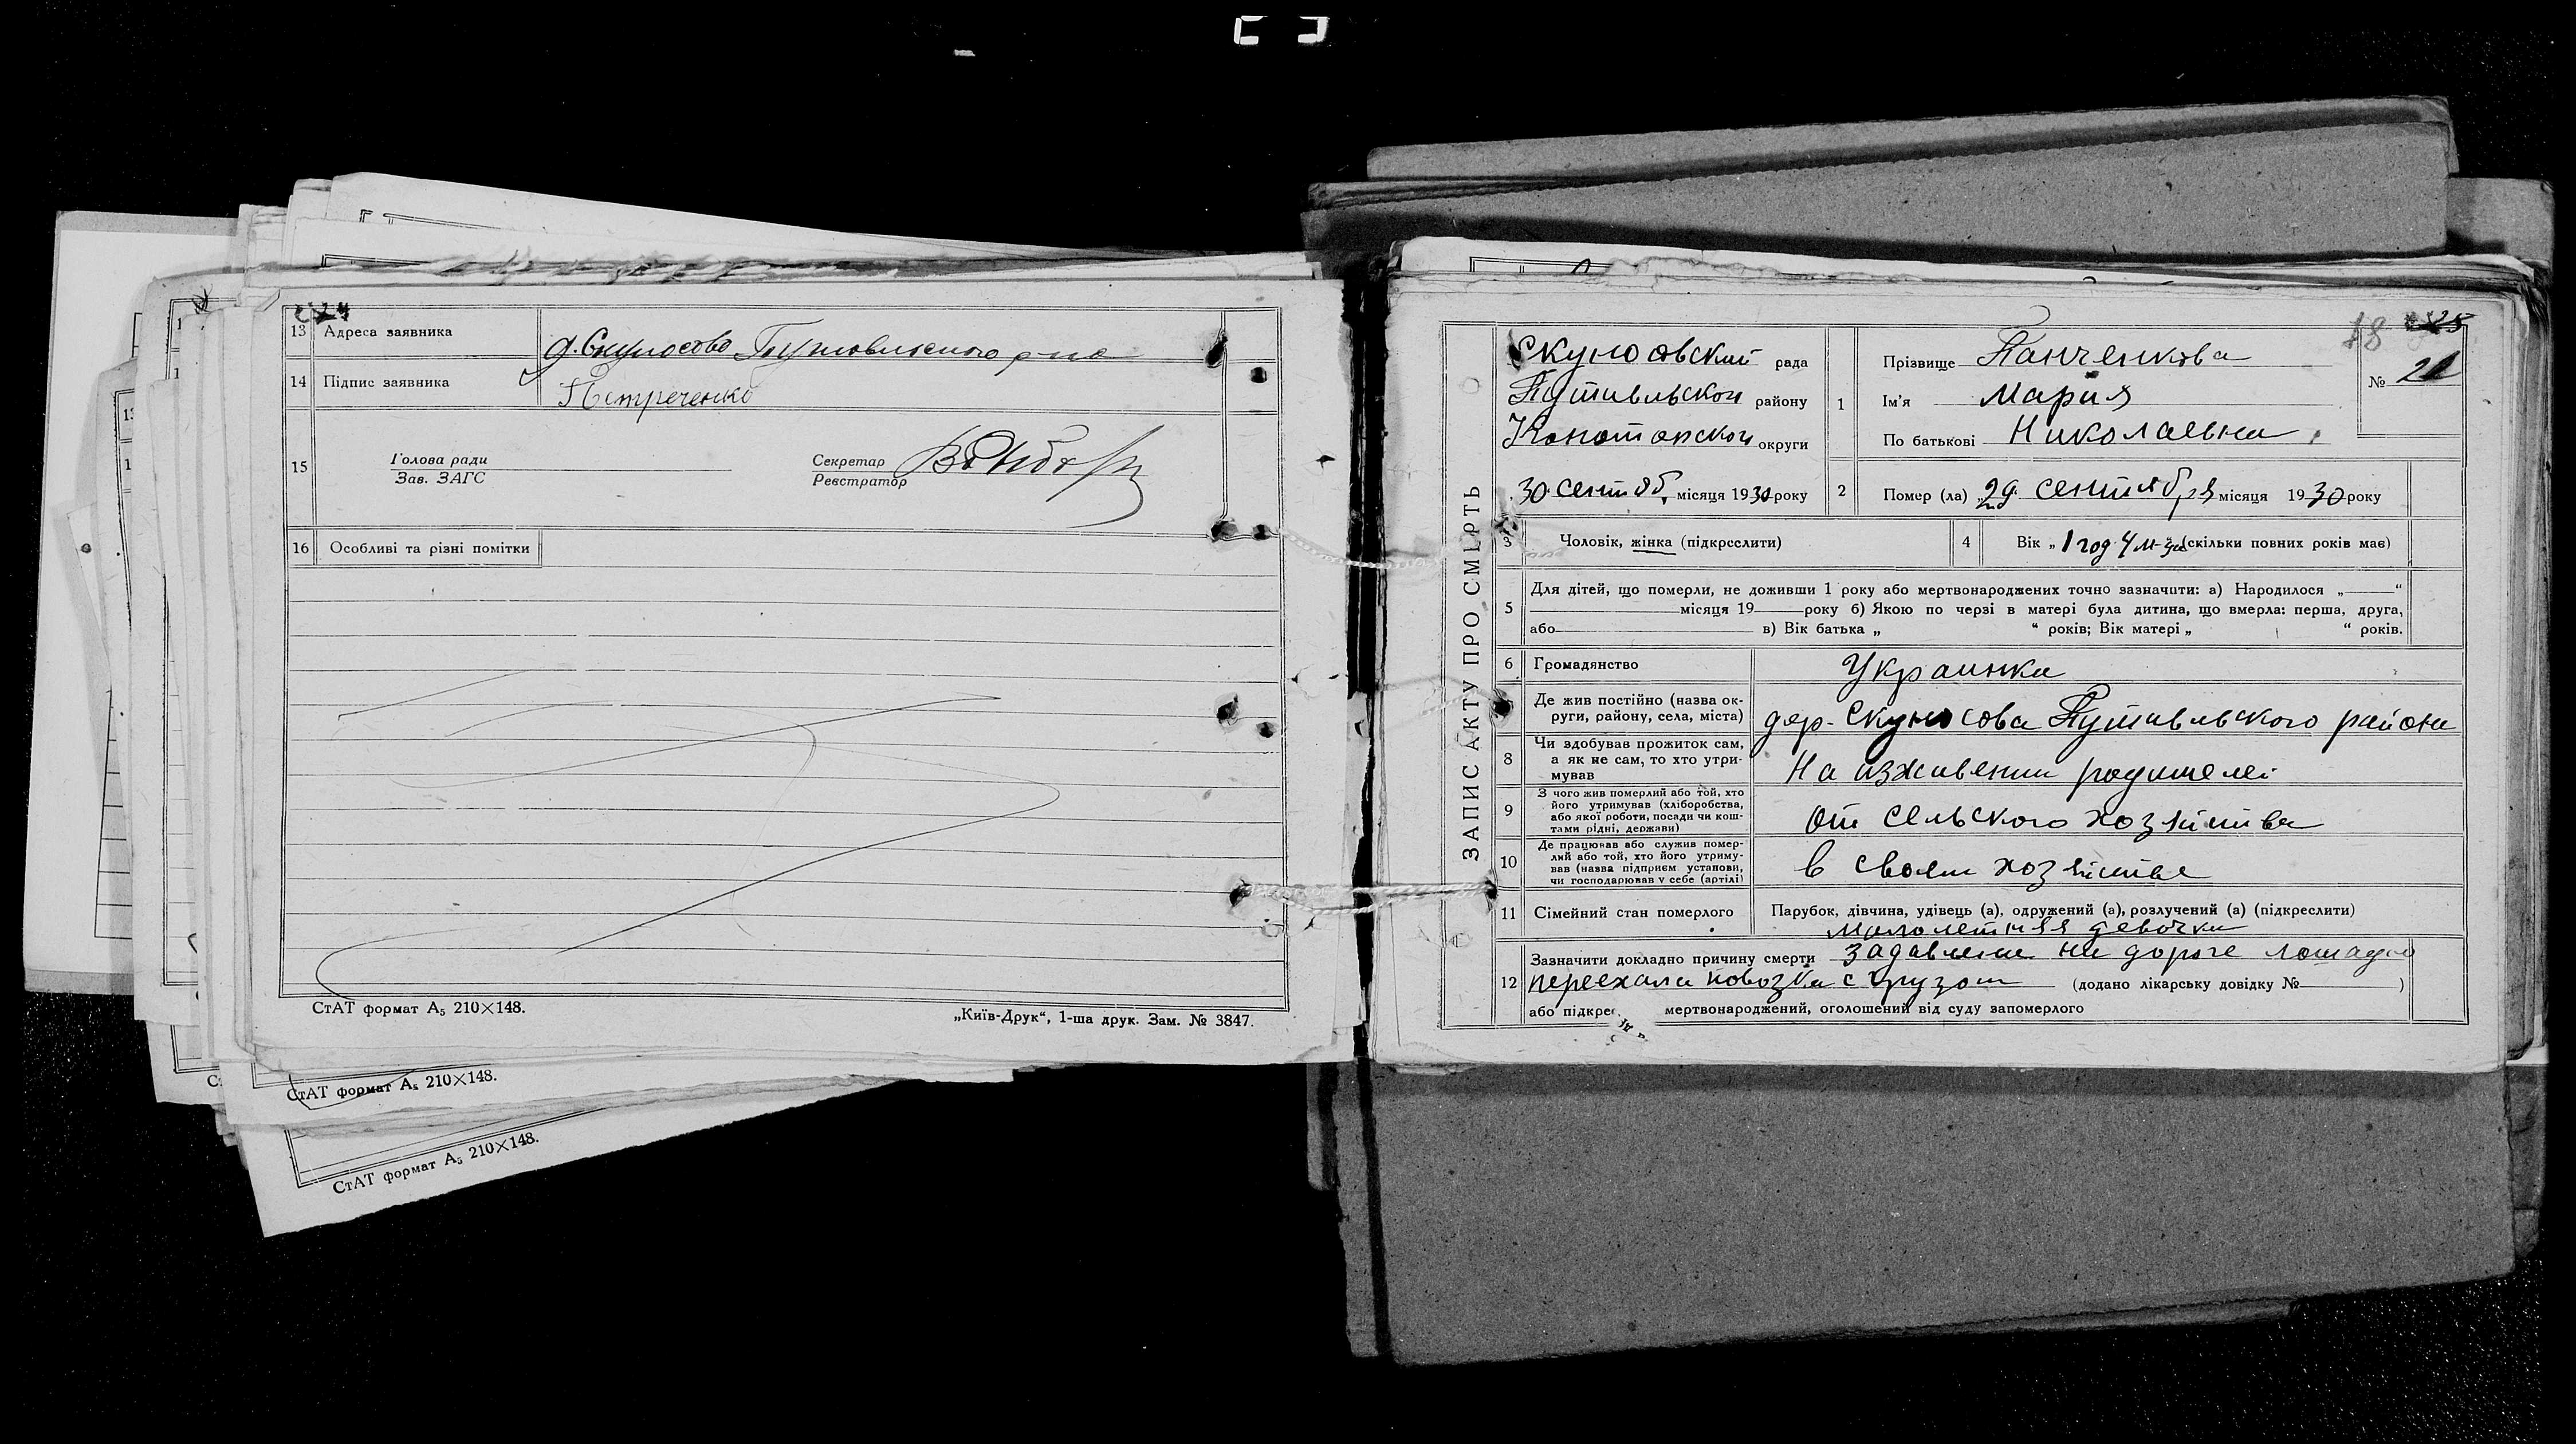 13 Адреса заявника д. Скуносово Путивльского р-на
14 Підпис заявника Петреченко
15 Голова ради
Зав. ЗАГС
Секретар
Реєстратор
16 Особливі та різні помітки
СтАТ формат А₅ 210×148.
„Київ-Друк“, 1-ша друк. Зам. № 3847.
СтАТ формат А₅ 210×148.
СтАТ формат А₅ 210×148.
ЗАПИС АКТУ ПРО СМЕРТЬ
18 25
№ 21
Скуносовский рада
Путивльской району
Конотопской округи
30 сентяб. місяця 1930 року
1 Прізвище Панченкова
Ім'я Мария
По батькові Николаевна
2 Помер (ла) „29 сентября місяця 1930 року
3 Чоловік, жінка (підкреслити)
4 Вік „1 год 4 м-ца“ (скільки повних років має)
5 Для дітей, що померли, не доживши 1 року або мертвонароджених точно зазначити: а) Народилося „ “
місяця 19 року б) Якою по черзі в матері була дитина, що вмерла: перша, друга,
або в) Вік батька „ “ років; Вік матері „ “ років.
6 Громадянство Украинка
Де жив постійно (назва ок-
руги, району, села, міста) дер. Скуносова Путивльского района
8 Чи здобував прожиток сам,
а як не сам, то хто утри-
мував На иживении родителей
9 З чого жив померлий або той, хто
його утримував (хліборобства,
або якої роботи, посади чи кош-
тами рідні, держави) От сельского хозяйства
10 Де працював або служив помер-
лий або той, хто його утриму-
вав (назва підприєм установи,
чи господарював у себе (артілі) в своем хозяйстве
11 Сімейний стан померлого Парубок, дівчина, удівець (а), одружений (а), розлучений (а) (підкреслити)
малолетняя девочка
12 Зазначити докладно причину смерти задавлена на дороге лошадью
переехала повозка с грузом (додано лікарську довідку № )
або підкрес мертвонароджений, оголошений від суду запомерлого